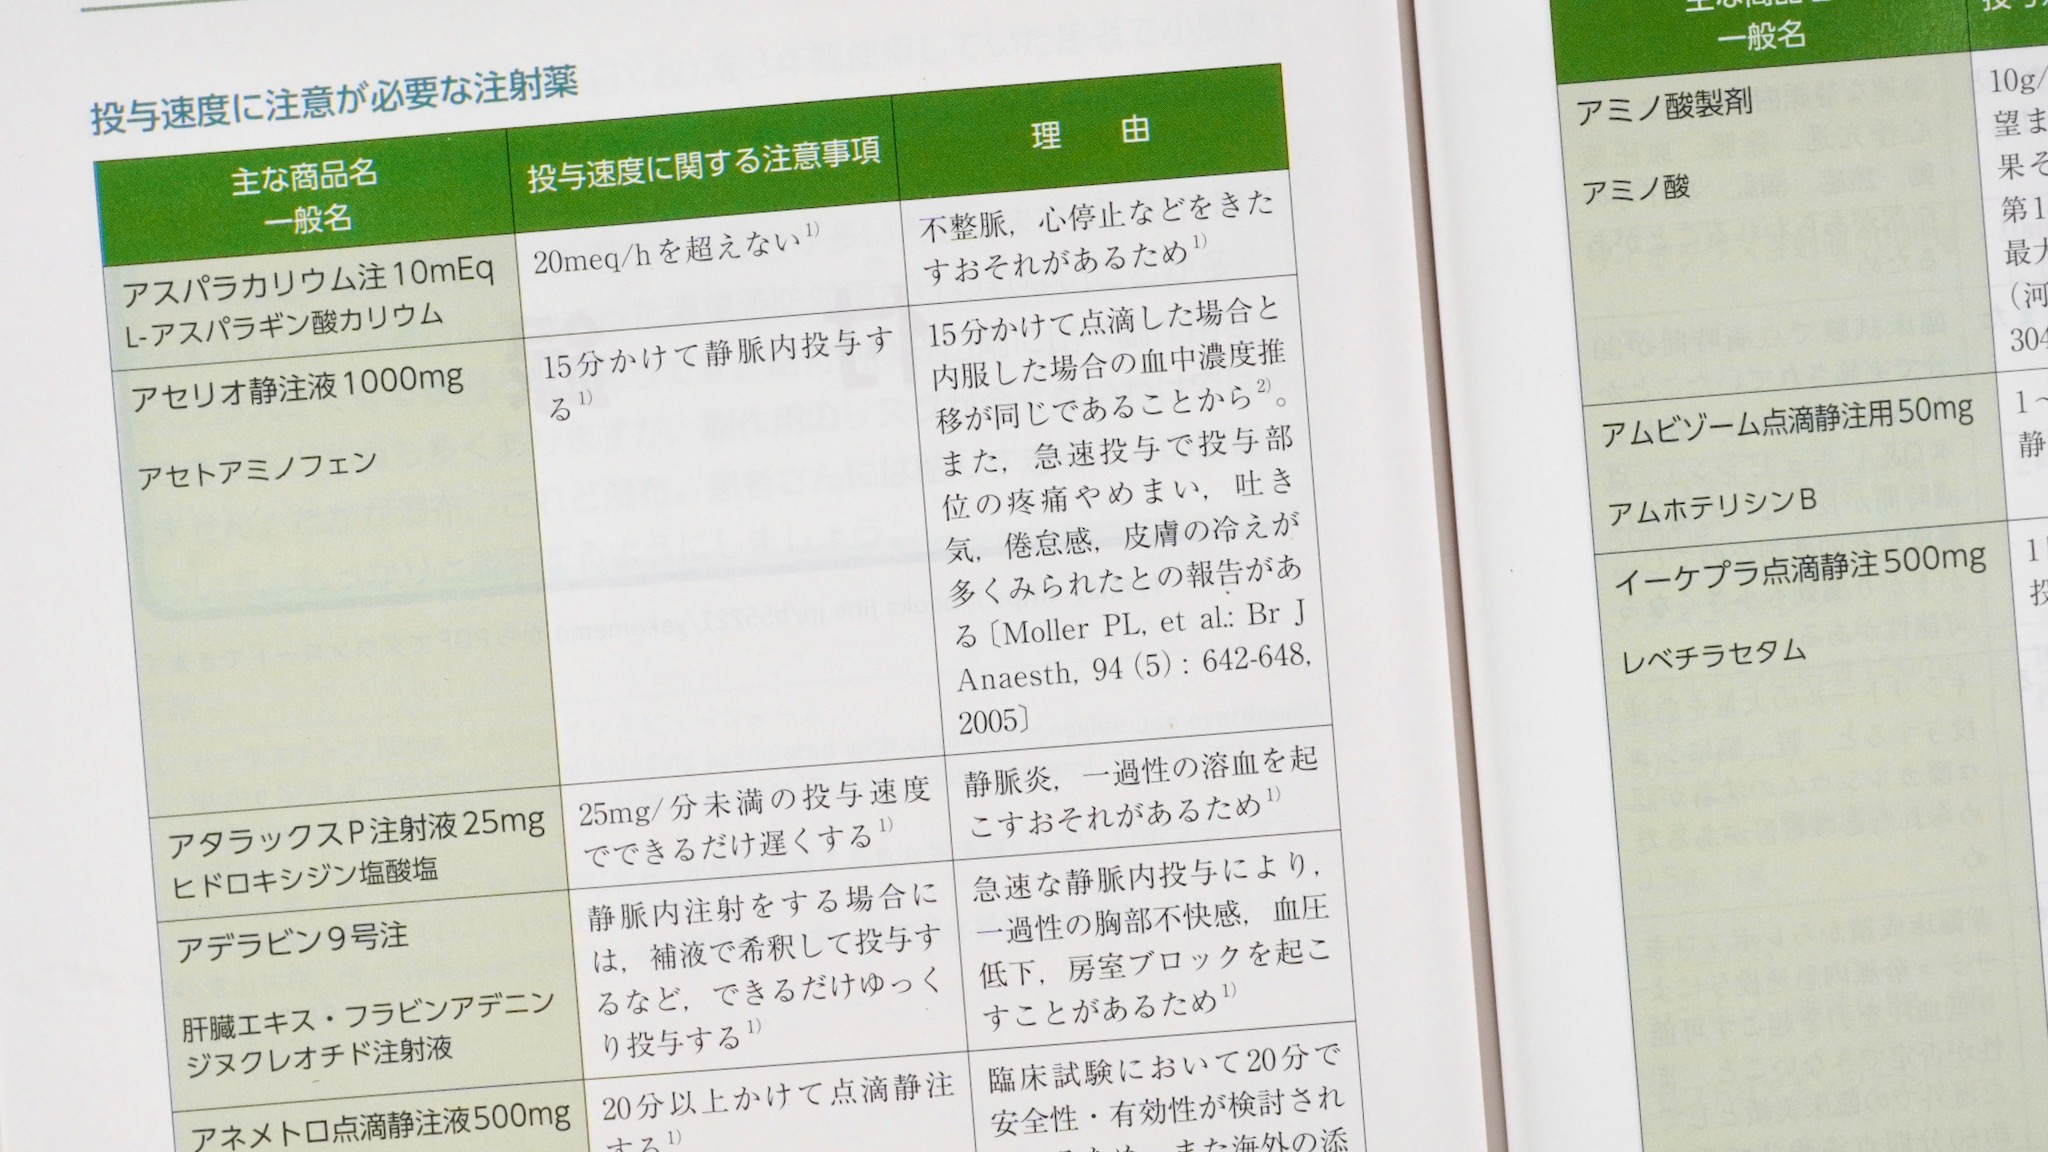 投与速度に注意が必要な注射薬
主な商品名
一般名
投与速度に関する注意事項
理 由
アスパラカリウム注10mEq
L-アスパラギン酸カリウム
20meq/hを超えない1)
不整脈，心停止などをきた
すおそれがあるため1)
アセリオ静注液1000mg
アセトアミノフェン
15分かけて静脈内投与す
る1)
15分かけて点滴した場合と
内服した場合の血中濃度推
移が同じであることから2)。
また，急速投与で投与部
位の疼痛やめまい，吐き
気，倦怠感，皮膚の冷えが
多くみられたとの報告があ
る〔Moller PL, et al.: Br J
Anaesth, 94 (5) : 642-648,
2005〕
アタラックスP注射液25mg
ヒドロキシジン塩酸塩
25mg/分未満の投与速度
でできるだけ遅くする1)
静脈炎，一過性の溶血を起
こすおそれがあるため1)
アデラビン9号注
肝臓エキス・フラビンアデニン
ジヌクレオチド注射液
静脈内注射をする場合に
は，補液で希釈して投与す
るなど，できるだけゆっく
り投与する1)
急速な静脈内投与により，
一過性の胸部不快感，血圧
低下，房室ブロックを起こ
すことがあるため1)
アネメトロ点滴静注液500mg
20分以上かけて点滴静注
する1)
臨床試験において20分で
安全性・有効性が検討され
るため，また海外の添
主な商品名
一般名
アミノ酸製剤
アミノ酸
10g/
望ま
果そ
第1
最大
（河
304
アムビゾーム点滴静注用50mg
アムホテリシンB
1～
静
イーケプラ点滴静注500mg
レベチラセタム
1
投